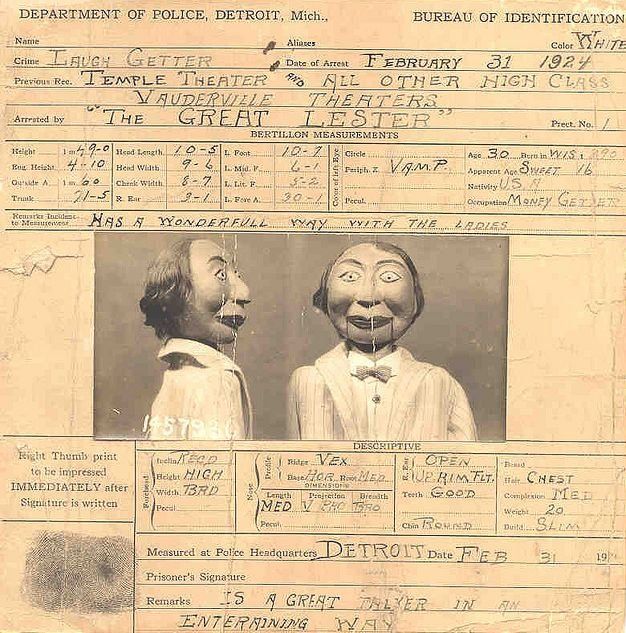 DEPARTMENT OF POLICE, DETROIT, Mich., BUREAU OF IDENTIFICATION
Name Aliases Color WHITE
Crime LAUGH GETTER Date of Arrest FEBRUARY 31 1924
Previous Rec. TEMPLE THEATER AND ALL OTHER HIGH CLASS
VAUDERVILLE THEATERS
Arrested by "THE GREAT LESTER" Prect. No. 1
BERTILLON MEASUREMENTS
Height 1 m 49-0 Head Length 10-5 L. Foot 10-7 Circle Age 30 Born in WIS
Eng. Height 4-10 Head Width 9-6 L. Mid. F. 6-1 Periph. Z VAMP. Apparent Age SWEET 16
Outside A. 1 m 60 Cheek Width 8-7 L. Lit. F. 5-2 Nativity U S A
Trunk 21-5 R. Ear 9-1 L. Fore A. 30-1 Pecul. Occupation MONEY GETTER
Color of left Eye
Remarks Incident to Measurement HAS A WONDERFULL WAY WITH THE LADIES
1457936
DESCRIPTIVE
Right Thumb print
to be impressed
IMMEDIATELY after
Signature is written
Forehead
Inclin. RECD
Height HIGH
Width BRD
Pecul.
Nose
Profile
Ridge VEX
Base HOR Root MED
DIMENSIONS
Length Projection Breadth
MED V PRO BRO
Pecul.
R. Ear OPEN
UP RIM FLT.
Teeth GOOD
Chin ROUND
Beard
Hair CHEST
Complexion MED
Weight 20
Build SLIM
Measured at Police Headquarters DETROIT Date FEB 31 19
Prisoner's Signature
Remarks IS A GREAT TALKER IN AN
ENTERAINING WAY